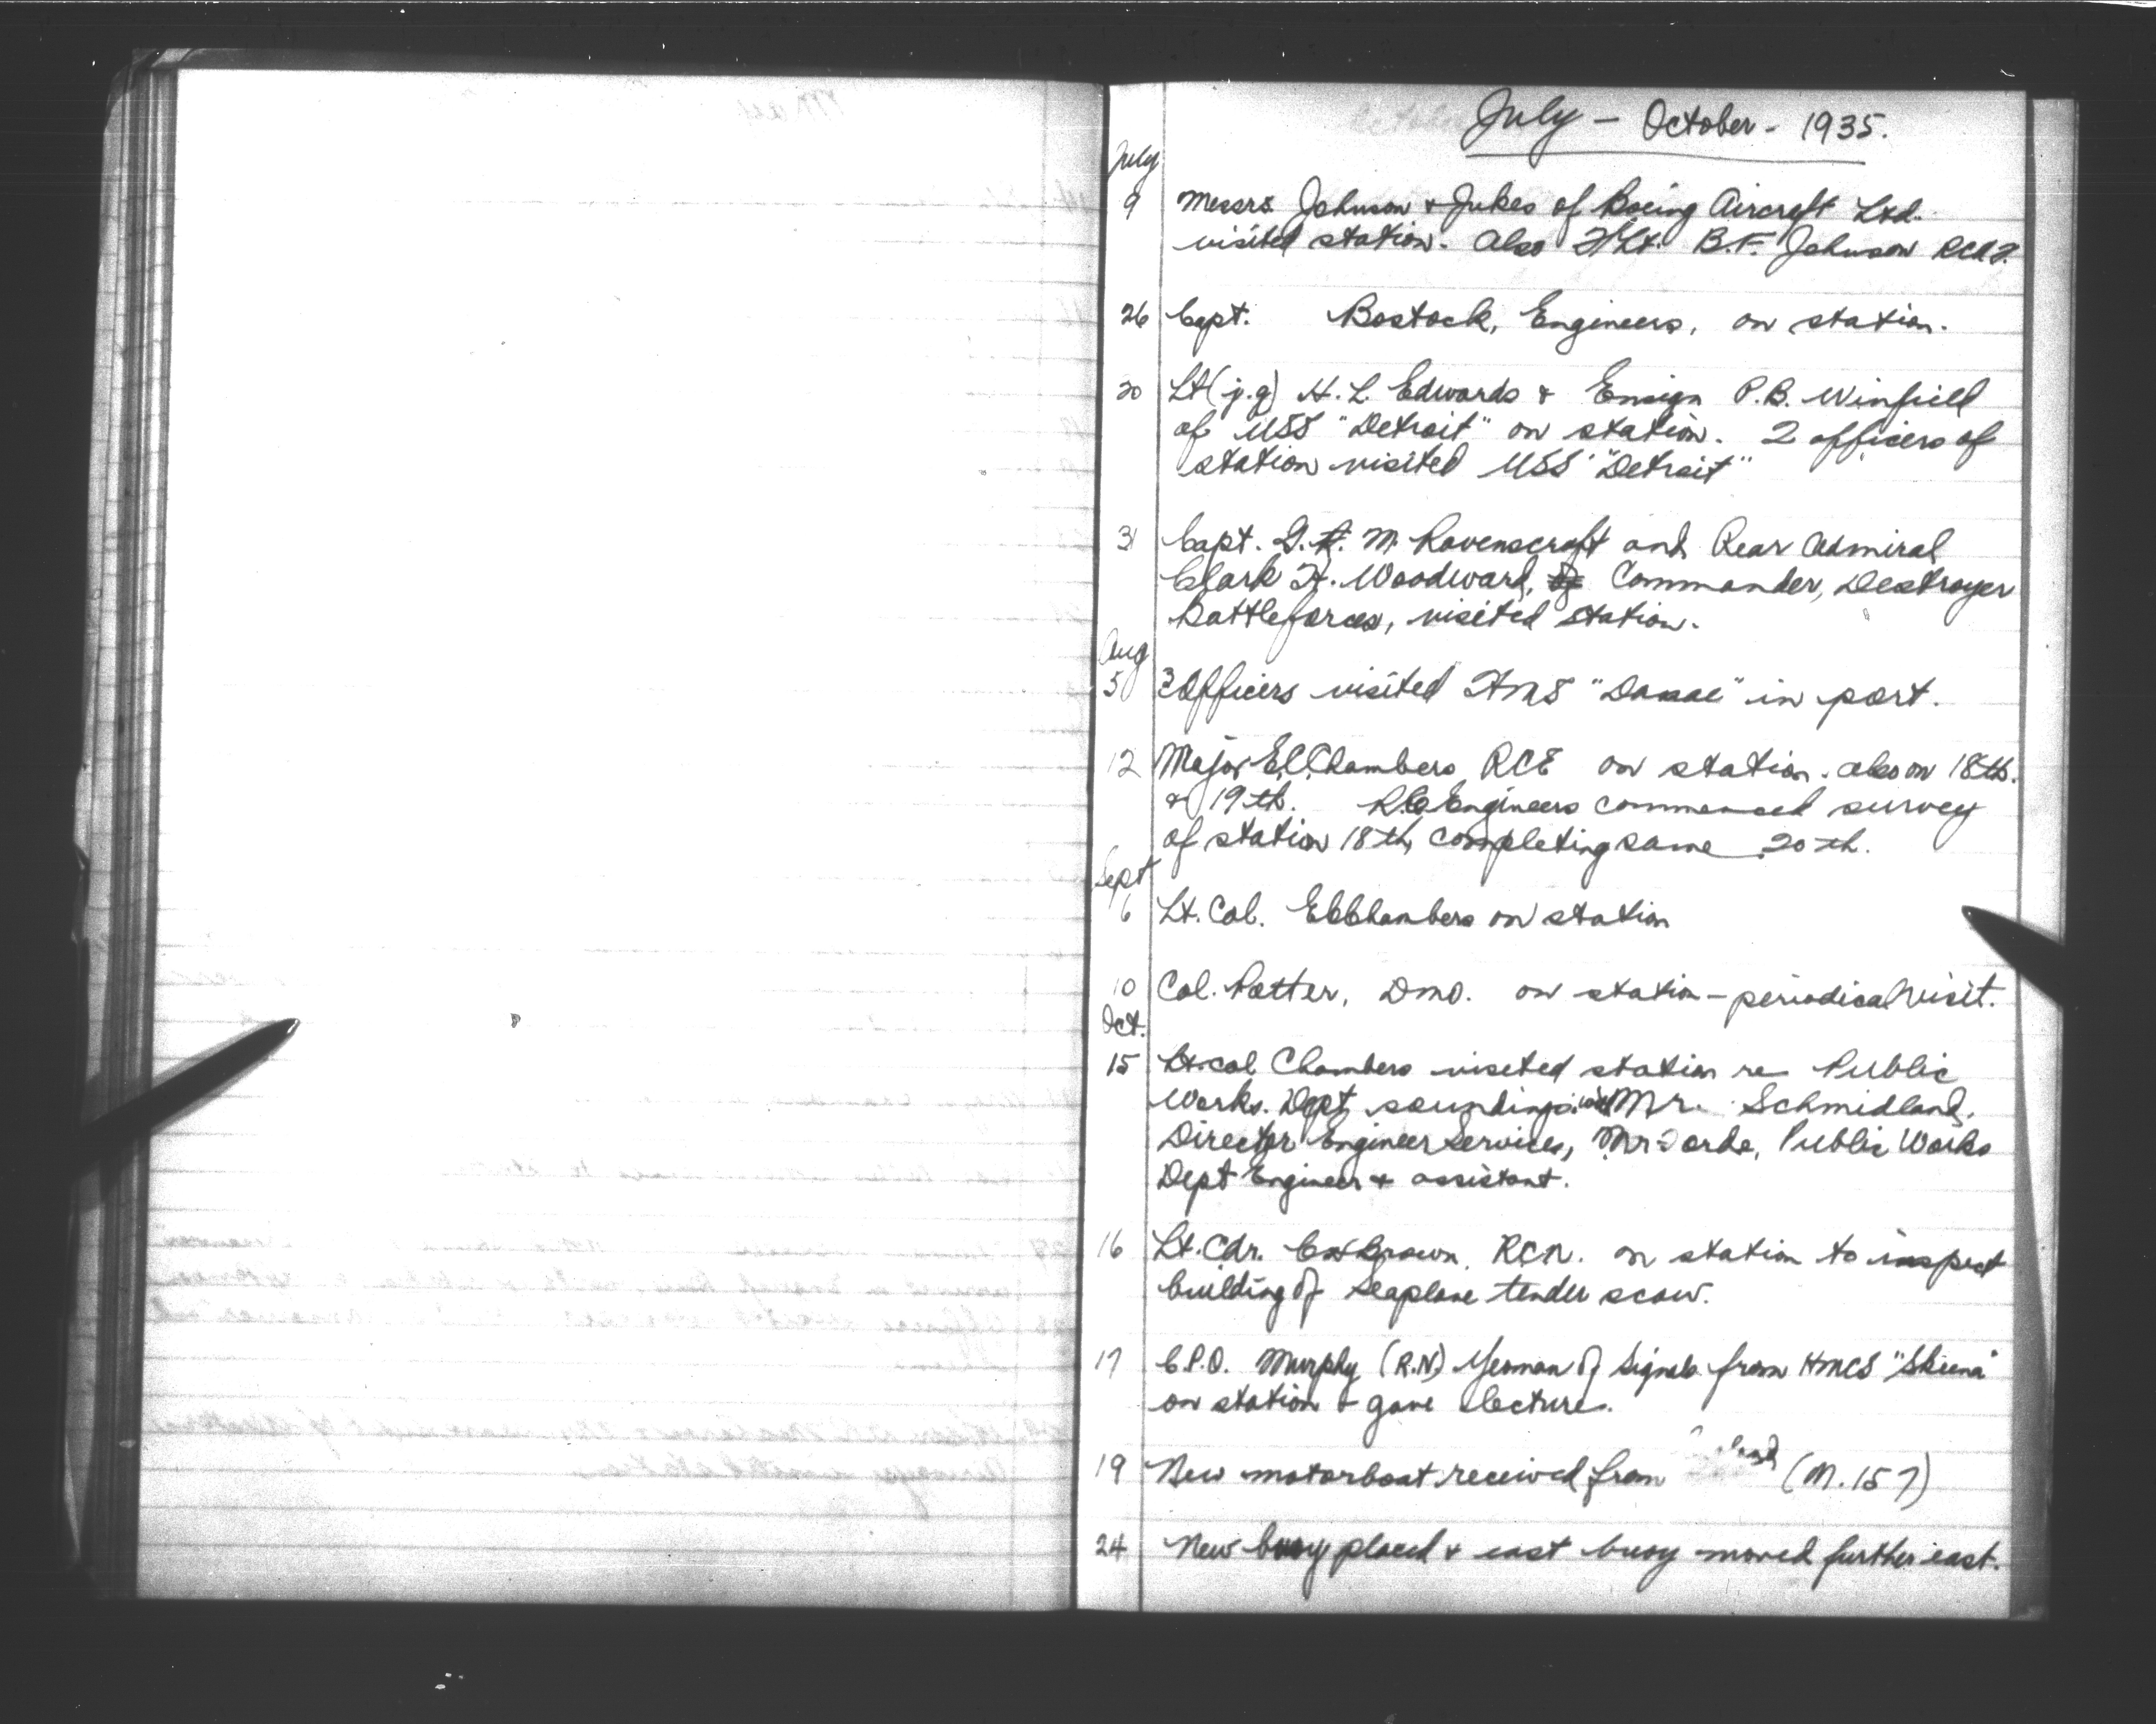 July – October – 1935.
July
9 Messrs Johnson & Jukes of Boeing Aircraft Ltd.
visited station. Also F/Lt. B.F. Johnson RCAF.
26 Capt. Bostock, Engineers, on station.
30 Lt (j.g) H. L. Edwards & Ensign P.B. Winfield
of USS "Detroit" on station. 2 officers of
station visited USS "Detroit"
31 Capt. G. M. Ravenscroft and Rear Admiral
Clark H. Woodward, Commander, Destroyer
Battleforces, visited station.
Aug
5 3 Officers visited HMS "Danae" in port.
12 Major E.C. Chambers RCE on station. also on 18th.
& 19th. R.C. Engineers commenced survey
of station 18th, completing same 20th.
Sept
6 Lt. Col. E C Chambers on station
10 Col. Potter, DMO. on station – periodical visit.
Oct.
15 Lt. Col Chambers visited station re Public
Works. Dept soundings. with Mr. Schmidland,
Director Engineer Services, Mr Public Works
Dept Engineer & assistant.
16 Lt. Cdr. Brown, RCN. on station to inspect
building of Seaplane tender scow.
17 C.P.O. Murphy (R.N.) Yeoman of Signals from HMCS "Skeena"
on station & gave lectures.
19 New motorboat received from (M.157)
24 New buoy placed & east buoy moved further east.